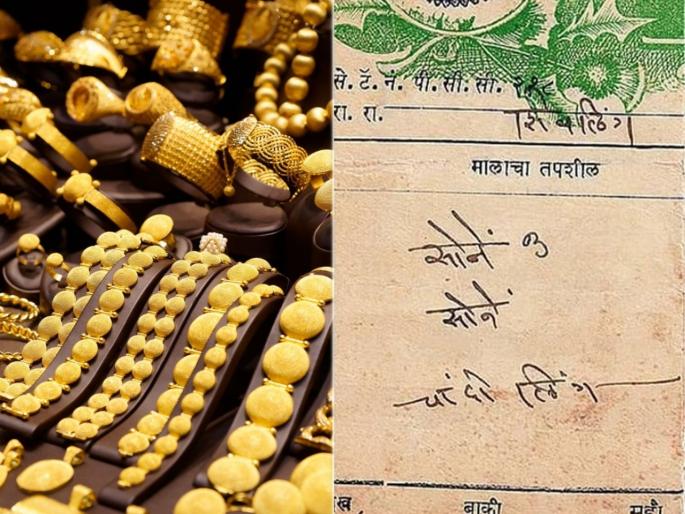 से. टॅ. नं. पी. सी. सी. २१८
रा. रा. शिवलिंग
मालाचा तपशील
सोनें
सोनें
चांदी लिंग
बाकी